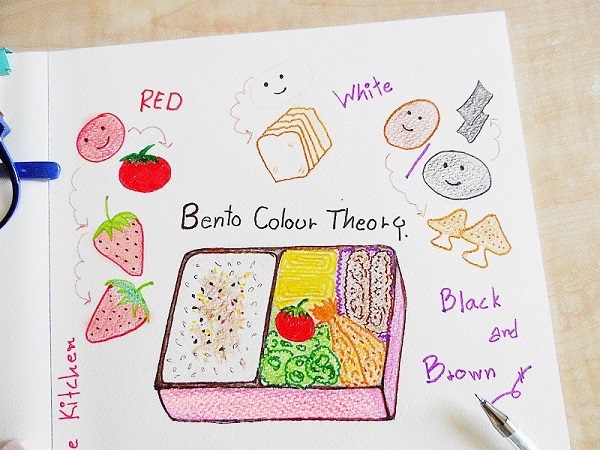 RED
White
Bento Colour Theory.
Black
and
Brown
e Kitchen